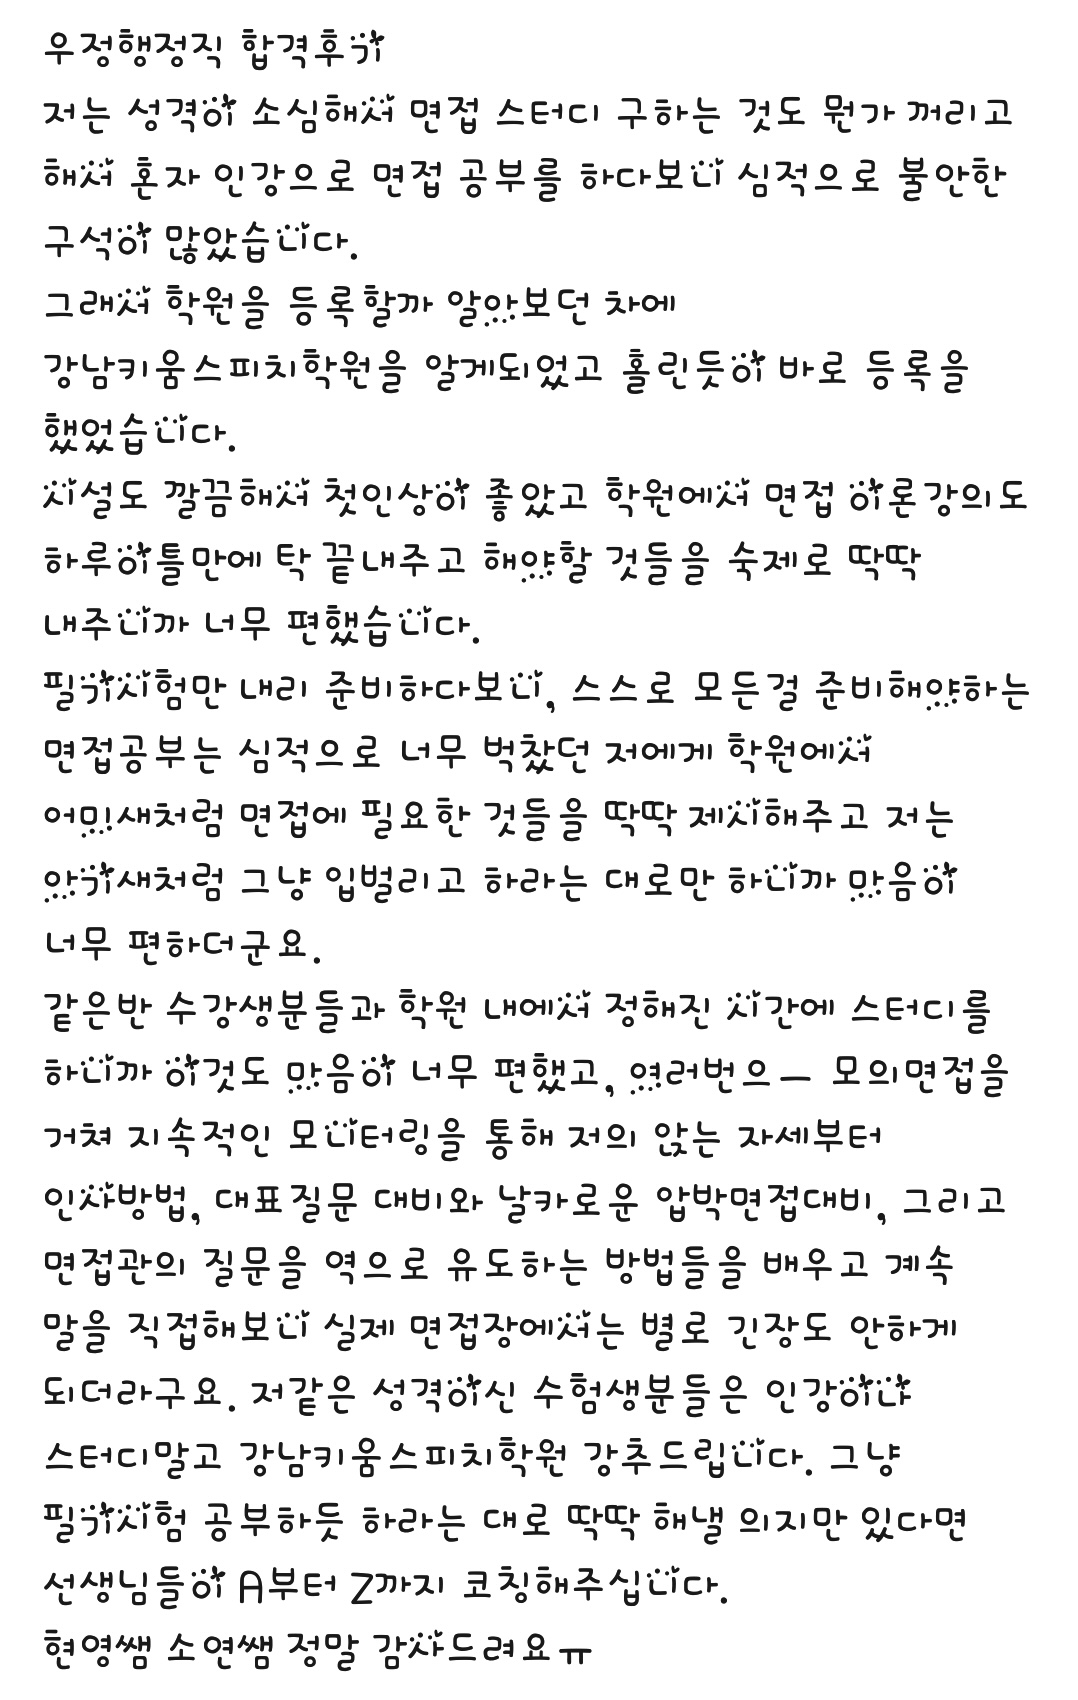 우정행정직 합격후기
저는 성격이 소심해서 면접 스터디 구하는 것도 뭔가 꺼리고
해서 혼자 인강으로 면접 공부를 하다보니 심적으로 불안한
구석이 많았습니다.
그래서 학원을 등록할까 알아보던 차에
강남키움스피치학원을 알게되었고 홀린듯이 바로 등록을
했었습니다.
시설도 깔끔해서 첫인상이 좋았고 학원에서 면접 이론강의도
하루이틀만에 탁 끝내주고 해야할 것들을 숙제로 딱딱
내주니까 너무 편했습니다.
필기시험만 내리 준비하다보니, 스스로 모든걸 준비해야하는
면접공부는 심적으로 너무 벅찼던 저에게 학원에서
어미새처럼 면접에 필요한 것들을 딱딱 제시해주고 저는
아기새처럼 그냥 입벌리고 하라는 대로만 하니까 마음이
너무 편하더군요.
같은반 수강생분들과 학원 내에서 정해진 시간에 스터디를
하니까 이것도 마음이 너무 편했고, 여러번으ㅡ 모의면접을
거쳐 지속적인 모니터링을 통해 저의 앉는 자세부터
인사방법, 대표질문 대비와 날카로운 압박면접대비, 그리고
면접관의 질문을 역으로 유도하는 방법들을 배우고 계속
말을 직접해보니 실제 면접장에서는 별로 긴장도 안하게
되더라구요. 저같은 성격이신 수험생분들은 인강이나
스터디말고 강남키움스피치학원 강추드립니다. 그냥
필기시험 공부하듯 하라는 대로 딱딱 해낼 의지만 있다면
선생님들이 A부터 Z까지 코칭해주십니다.
현영쌤 소연쌤 정말 감사드려요ㅠ